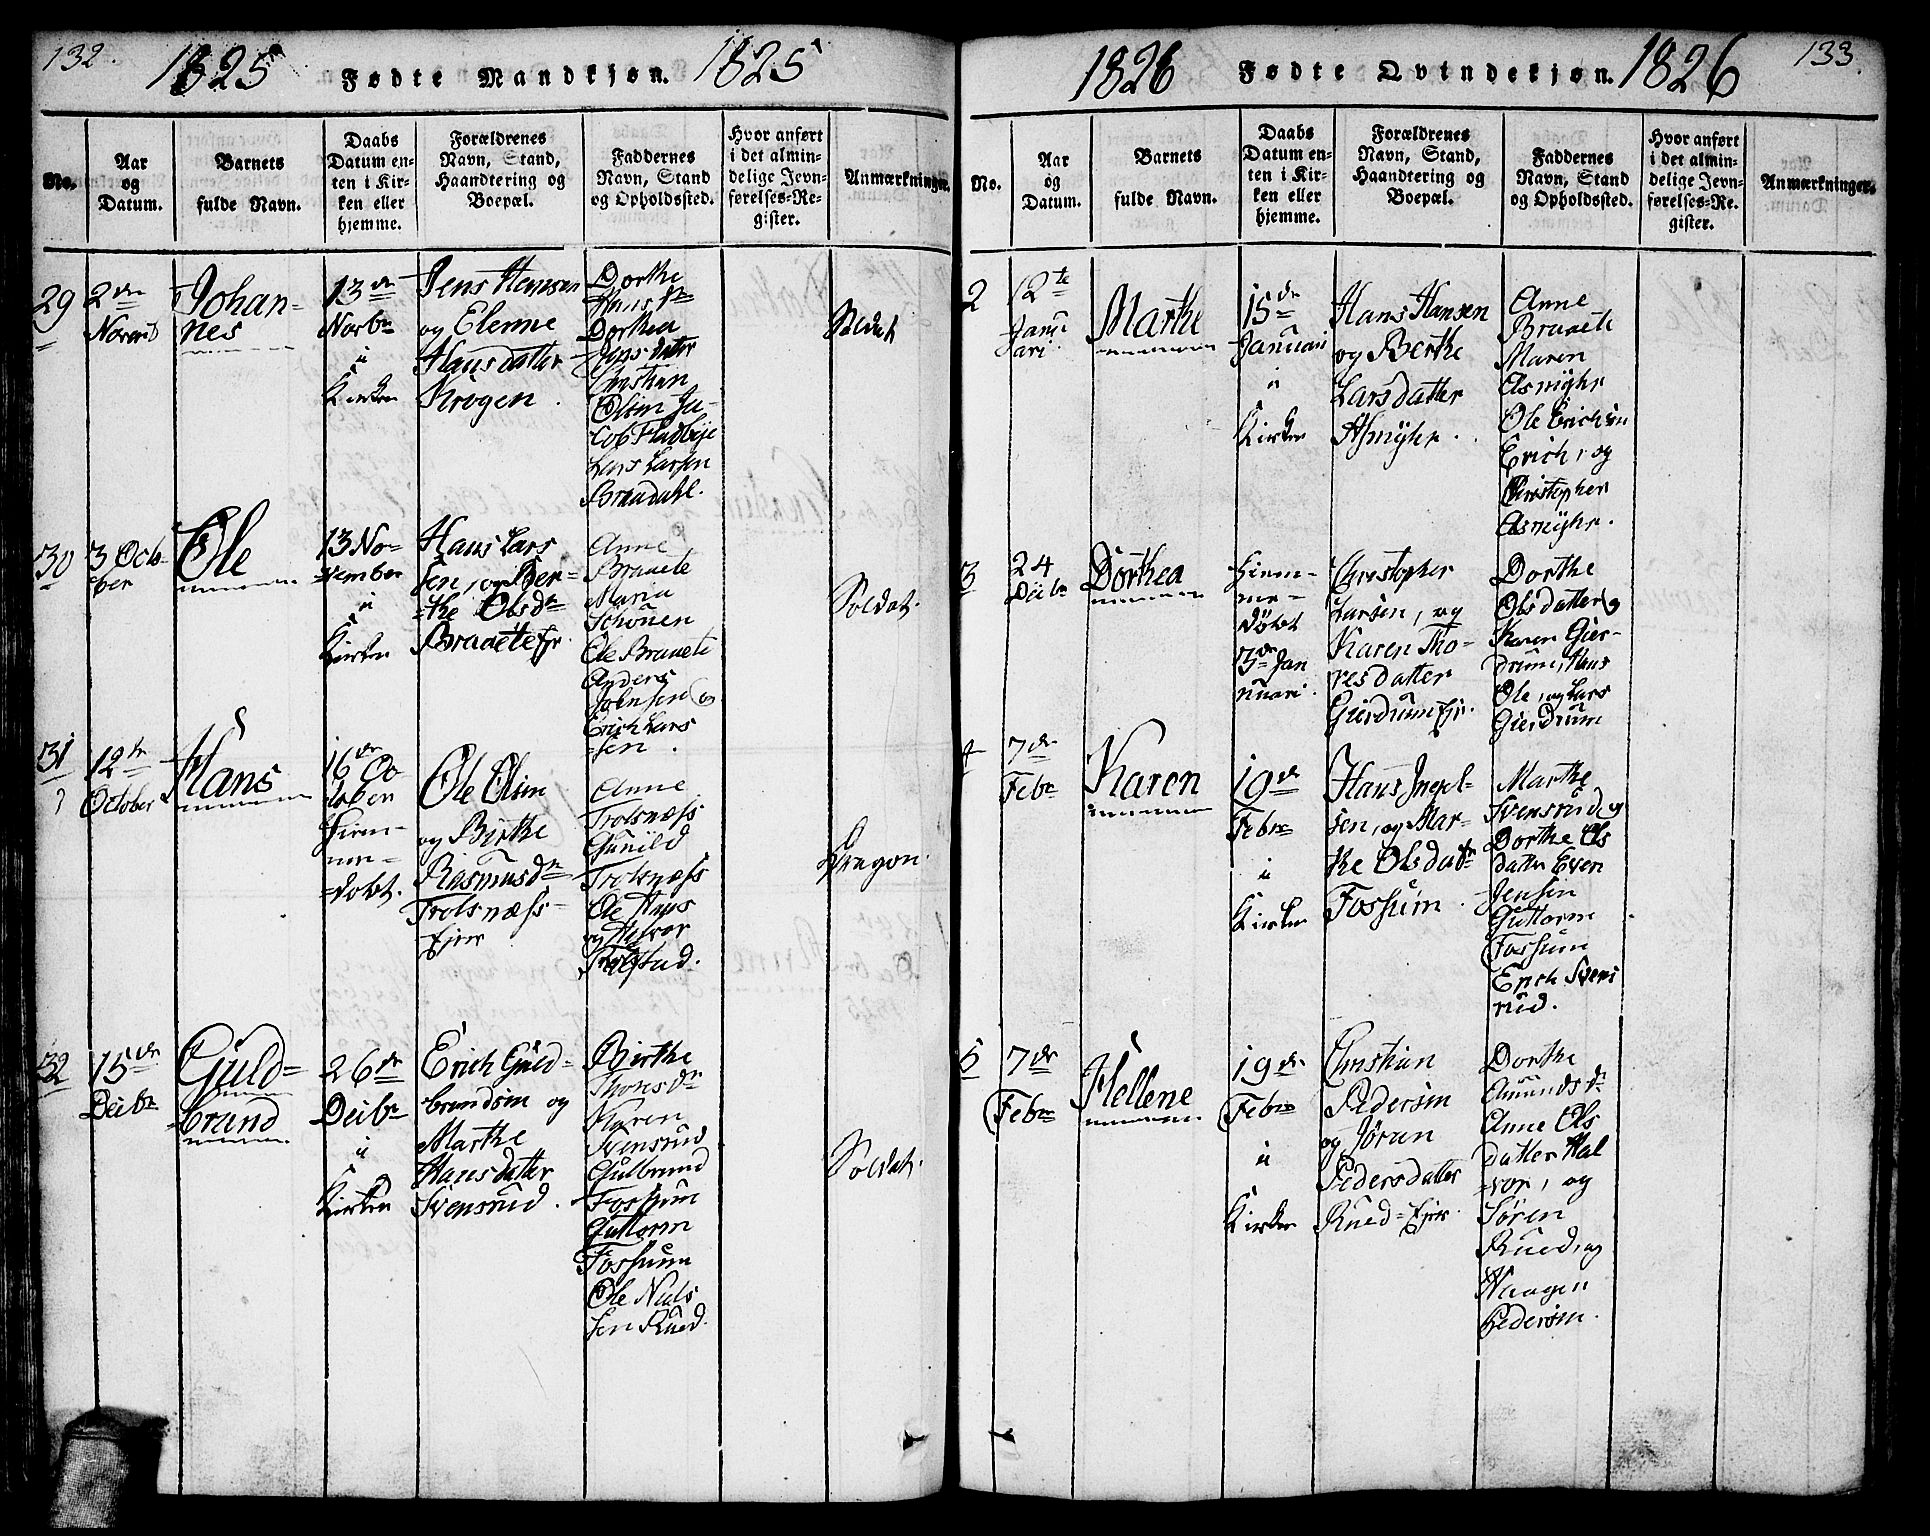 132.
1825 Fødte Mandkjøn. 1825
No.
Aar
og
Datum.
Barnets
fulde Navn.
Daabs
Datum en-
ten i Kir-
ken eller
hjemme.
Forældrenes
Navn, Stand,
Haandtering og
Boepæl.
Faddernes
Navn, Stand
og Opholdssted.
Hvor anført
i det almin-
delige Jevn-
førelses-Re-
gister.
Anmærkninger.
29
2den
Novemb
Johan-
nes
13de
Novbr
i
Kirken
Jens Hansen
og Elenne
Hansdatter
Krogen.
Dorthe
Hans Dr
Dorthea
Jensdatter
Christian
Olsen Ja-
cob Fladbye
Lars Larsen
Braadahl.
Soldat
30
3 Octo-
ber
Ole
13 No-
vember
i
Kirken
Hans Lars
sen, og Ber-
the Olsdr
Braaete Ejr.
Anne
Braaete
Maria
Schouen
Ole Braaete
Anders
Johnsen og
Erich Lars
sen.
Soldat.
31
12te
October
Hans
16de Oc-
tober
Hiem-
me-
døbt.
Ole Olsen
og Birthe
Rasmusdr
Trolsnæss
Ejer
Anne
Trolsnæss
Gunild
Trolsnæss
Ole Hans
og Halvor
Trolstad.
Dragon.
32
15de
Decbr
Guld-
brand
26de
Decbr
i
Kirken
Erich Guld-
brandsen og
Marthe
Hansdatter
Svensrud.
Birthe
Thoresdr
Karen
Svensrud
Gulbrand
Fossum
Guttorm
Fossum
Ole Niels
sen Rued.
Soldat.
1826 Fødte Qvindekjøn. 1826
133.
No.
Aar
og
Datum.
Barnets
fulde Navn.
Daabs
Datum en-
ten i Kir-
ken eller
hjemme.
Forældrenes
Navn, Stand,
Haandtering og
Boepæl.
Faddernes
Navn, Stand
og Opholdssted.
Hvor anført
i det almin-
delige Jevn-
førelses-Re-
gister.
Anmærkninger.
2
12te
Janu
ari
Marthe
15de
Januari
i
Kirken
Hans Hansen
og Berthe
Larsdatter
Asmyhr.
Anne
Braaete
Maren
Asmyhr
Ole Erichsen
Erich, og
Christopher
Asmyhr.
3
24
Decbr
Dorthea
Hiem-
me-
døbt
3de Jan
nuari.
Christopher
Larsen, og
Karen Tho-
resdatter
Gierdrum Ejr.
Dorthe
Olsdatter og
Karen Gier-
drum, Hans
Ole, og Lars
Gierdrum
4
7de
Febr
Karen
19de
Febr
i
Kirken
Hans Ingel-
sen, og Mar-
the Olsdatr
Fossum.
Marthe
Svensrud og
Dorthe Ols
datter Even
Jensen
Guttorm
Fossum
Erich Svens
rud.
5
7de
Febr
Hellene
19de
Febr
i
Kirken
Christian
Pedersen
og Jøran
Pedersdatter
Rued Ejer.
Dorthe
Amundsdr
Anne Ols
datter Hal
vor, og
Søren
Rued, og
Haagen
Pedersen.